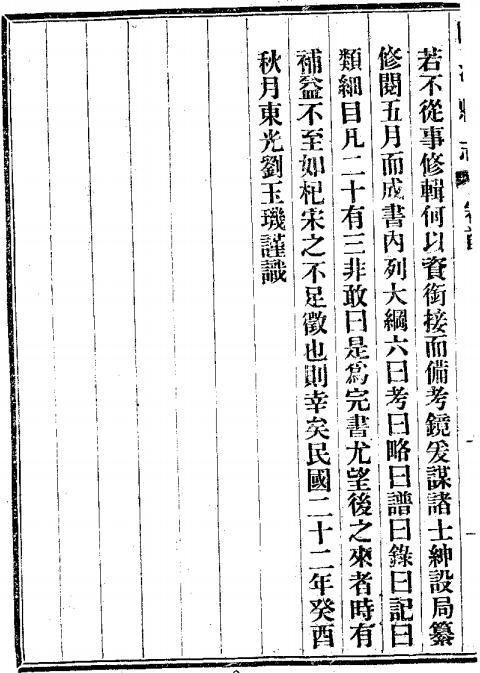 若不從事修輯何以資銜接而備考鏡爰謀諸士紳設局纂
修閱五月而成書內列大綱六曰考曰略曰譜曰錄曰記曰
類細目凡二十有三非敢曰是爲完書尤望後之來者時有
補益不至如杞宋之不足徵也則幸矣民國二十二年癸酉
秋月東光劉玉璣謹識